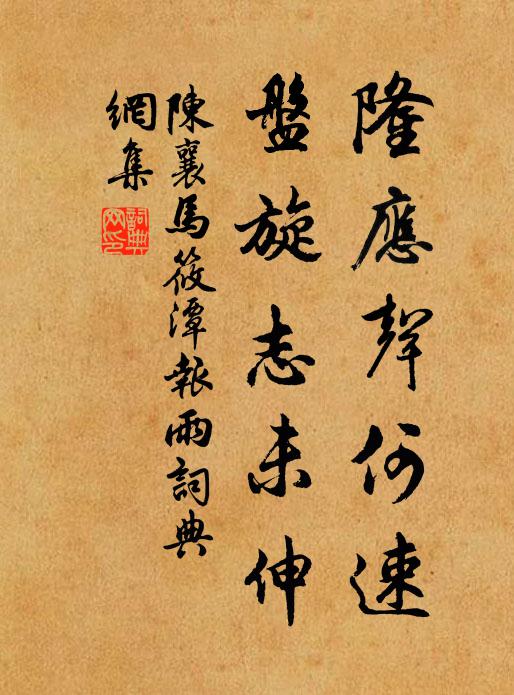 隆應聲何速
盤旋志未伸
陳襄馬筱潭報雨詞典
網集
詞典網印